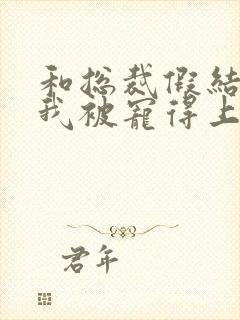 和总裁假结
我被宠得上
君年